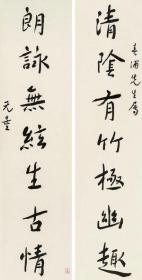 清陰有竹極幽趣
浦先生屬
朗詠無絃生古情
元